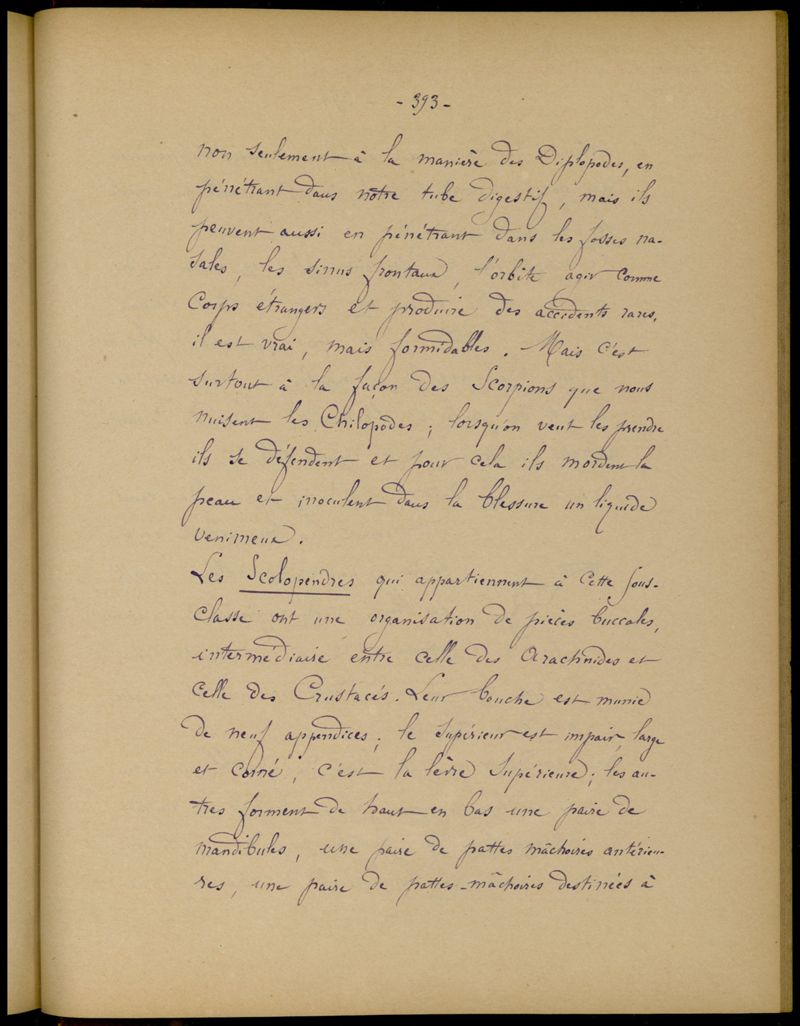 - 393 -
non seulement à la manière des Diplopodes, en
pénétrant dans notre tube digestif, mais ils
peuvent aussi en pénétrant dans les fosses na-
sales, les sinus frontaux, l'orbite agir comme
corps étrangers et produire des accidents rares,
il est vrai, mais formidables. Mais c'est
surtout à la façon des Scorpions que nous
nuisent les Chilopodes ; lorsqu'on veut les prendre
ils se défendent et pour cela ils mordent la
peau et inoculent dans la blessure un liquide
venimeux.
Les Scolopendres qui appartiennent à cette sous-
classe ont une organisation de pièces buccales,
intermédiaire entre celle des Arachnides et
celle des Crustacés. Leur bouche est munie
de neuf appendices ; le supérieur est impair, large
et corné, c'est la lèvre supérieure ; les au-
tres forment de haut en bas une paire de
mandibules, une paire de pattes mâchoires antérieu-
res, une paire de pattes-mâchoires destinées à